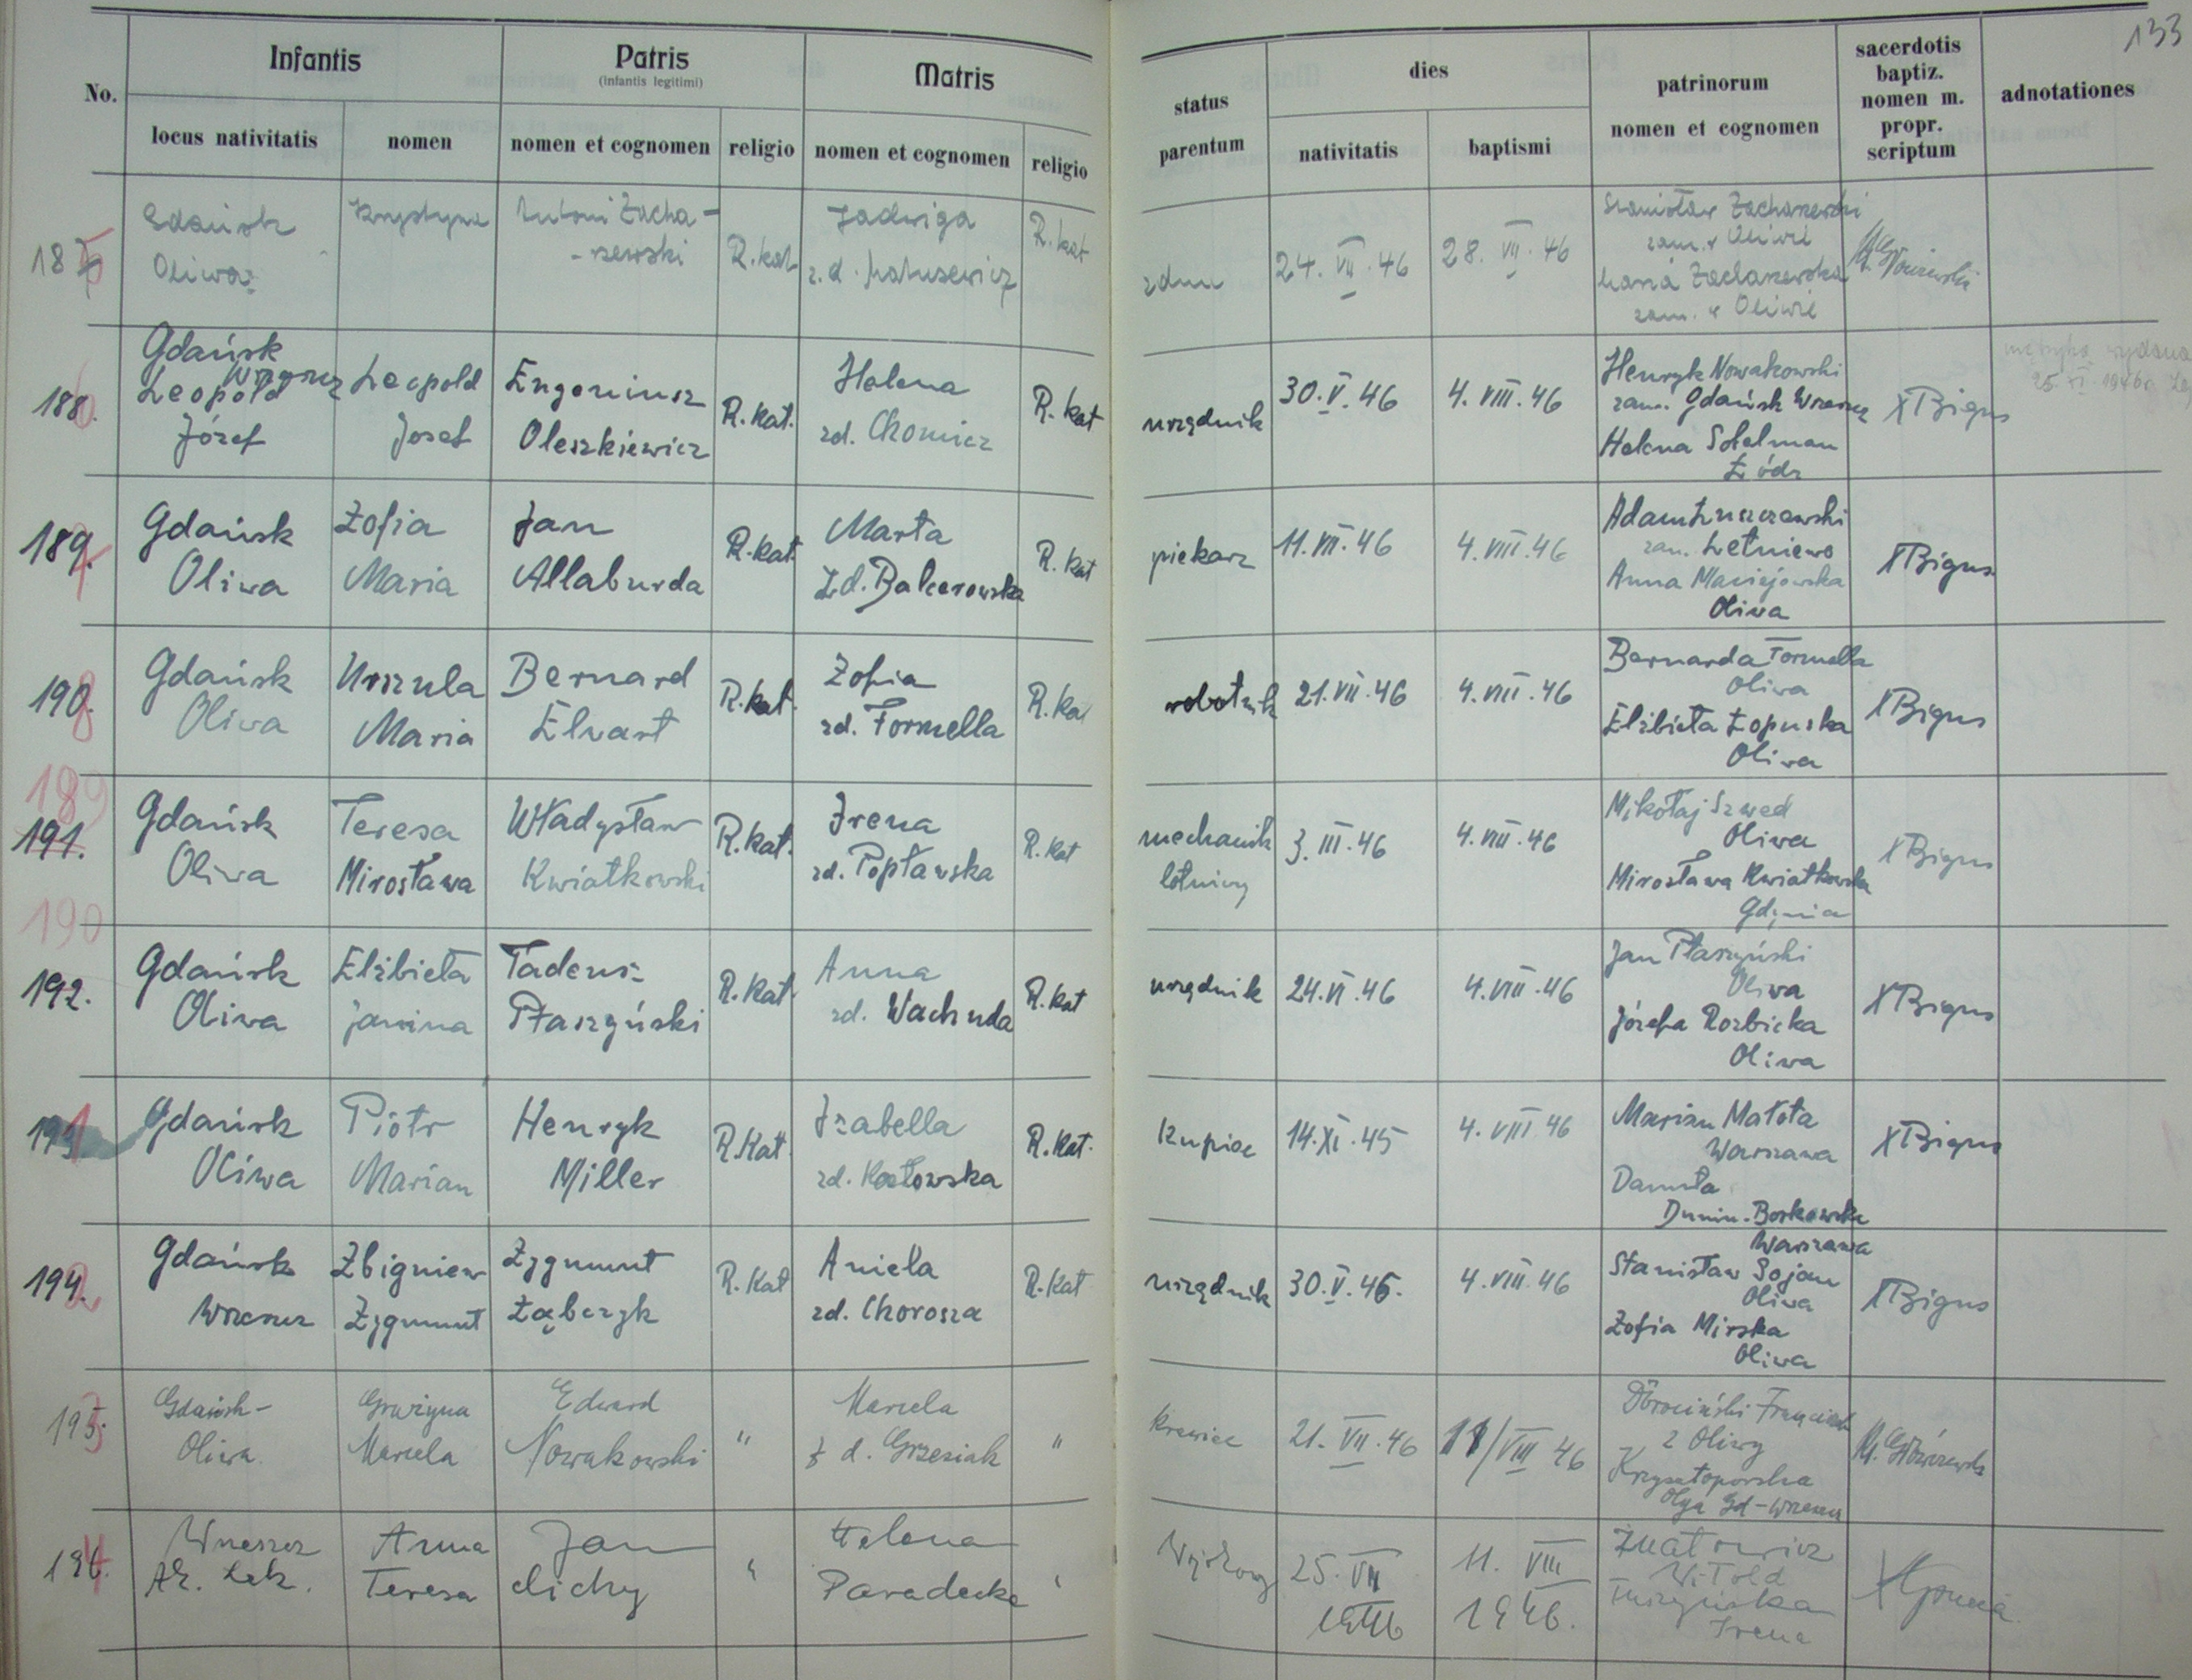 133
No.
Infantis
locus nativitatis
nomen
Patris
(infantis legitimi)
nomen et cognomen
religio
Matris
nomen et cognomen
religio
status
parentum
dies
nativitatis
baptismi
patrinorum
nomen et cognomen
sacerdotis
baptiz.
nomen m.
propr.
scriptum
adnotationes
Gdańsk
Oliwa
Krystyna
Antoni Zacha-
-rzewski
R.kat
Jadwiga
z.d. Matusewicz
R.kat
24. VII. 46
28. VII. 46
Stanisław Zacharzewski
zam. w Oliwie
Maria Zacharzewska
zam. w Oliwie
188.
Gdańsk
Wrzeszcz
Leopold
Józef
Leopold
Josef
Eugeniusz
Oleszkiewicz
R.kat.
Helena
zd. Chomicz
R.kat
urzędnik
30.V.46
4.VIII.46
Henryk Nowakowski
zam. Gdańsk Wrzeszcz
Helena Sokelman
Łódz
XBigus
metryka wydana
25. XI. 1946r
189.
Gdańsk
Oliwa
Zofia
Maria
Jan
Allaburda
R.kat.
Marta
zd. Balcerowska
R.kat
piekarz
11.VII.46
4.VIII.46
Adam Łuszczewski
zam. Letniewo
Anna Maciejowska
Oliwa
XBigus
190.
Gdańsk
Oliwa
Urszula
Maria
Bernard
Elwart
R.kat.
Zofia
zd. Formella
R.ka
robotnik
21.VII.46
4.VIII.46
Bernarda Formella
Oliwa
Elżbieta Łopuska
Oliwa
XBigus
189
191.
Gdańsk
Oliwa
Teresa
Mirosława
Władysław
Kwiatkowski
R.kat.
Irena
zd. Popławska
R.kat
mechanik
lotniczy
3.III.46
4.VIII.46
Mikołaj Szwed
Oliwa
Mirosława Kwiatkowska
Gdynia
XBigus
190
192.
Gdańsk
Oliwa
Elżbieta
Janina
Tadeusz
Ptaszyński
R.kat.
Anna
zd. Wachuda
R.kat
urzędnik
24.VI.46
4.VIII.46
Jan Ptaszyński
Oliwa
Józefa Rozbicka
Oliwa
XBigus
Gdańsk
Oliwa
Piotr
Marian
Henryk
Miller
R.Kat.
Izabella
zd. Kozłowska
R.kat.
Kupiec
14.XI.45
4.VIII.46
Marian Małota
Warszawa
Danuta
Dunin-Borkowska
Warszawa
XBigus
194.
Gdańsk
Wrzeszcz
Zbigniew
Zygmunt
Zygmunt
Ząbczyk
R.Kat
Aniela
zd. Chorosza
R.Kat
urzędnik
30.V.46.
4.VIII.46
Stanisław Sojan
Oliwa
Zofia Mirska
Oliwa
XBigus
195.
Gdańsk-
Oliwa
Grażyna
Marcela
Edward
Nowakowski
"
Marcela
z d. Grzesiak
"
krawiec
21. VII. 46
11/VIII 46
Franciszek
z Oliwy
Krzysztoporska
Olga Gd-Wrzeszcz
196.
Wrzeszcz
Ak. Lek.
Anna
Teresa
Jan
Cichy
"
Helena
Paradecka
"
Wojskowy
25. VII
1946
11. VIII
1946.
Witold
Irena